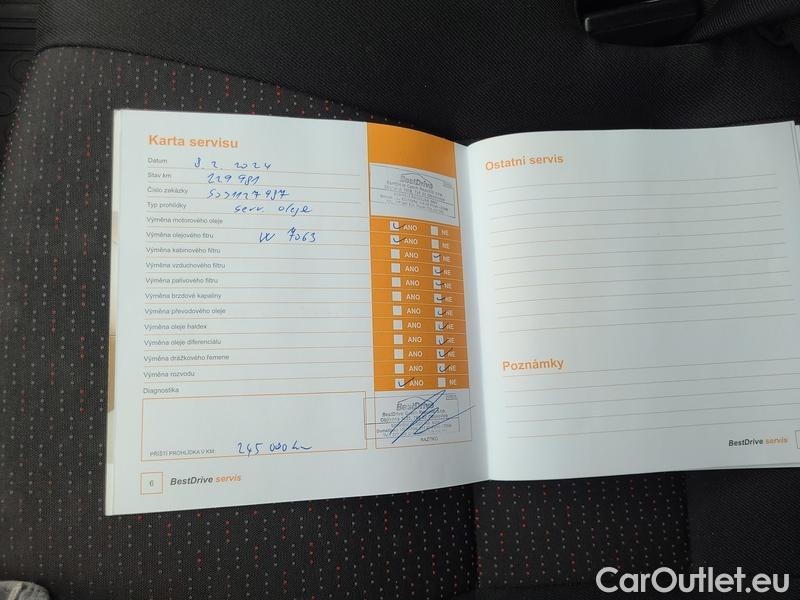 Karta servisu
Datum 8. 2. 2024
Stav km 229 981
Číslo zakázky
Typ prohlídky serv. oleje
Výměna motorového oleje ANO NE
Výměna olejového filtru W 7063 ANO NE
Výměna kabinového filtru ANO NE
Výměna vzduchového filtru ANO NE
Výměna palivového filtru ANO NE
Výměna brzdové kapaliny ANO NE
Výměna převodového oleje ANO NE
Výměna oleje haldex ANO NE
Výměna oleje diferenciálu ANO NE
Výměna drážkového řemene ANO NE
Výměna rozvodu ANO NE
Diagnostika ANO NE
BestDrive
BestDrive
RAZÍTKO
PŘÍŠTÍ PROHLÍDKA V KM: 245 000 km
6 BestDrive servis
Ostatní servis
Poznámky
BestDrive servis
CarOutlet.eu